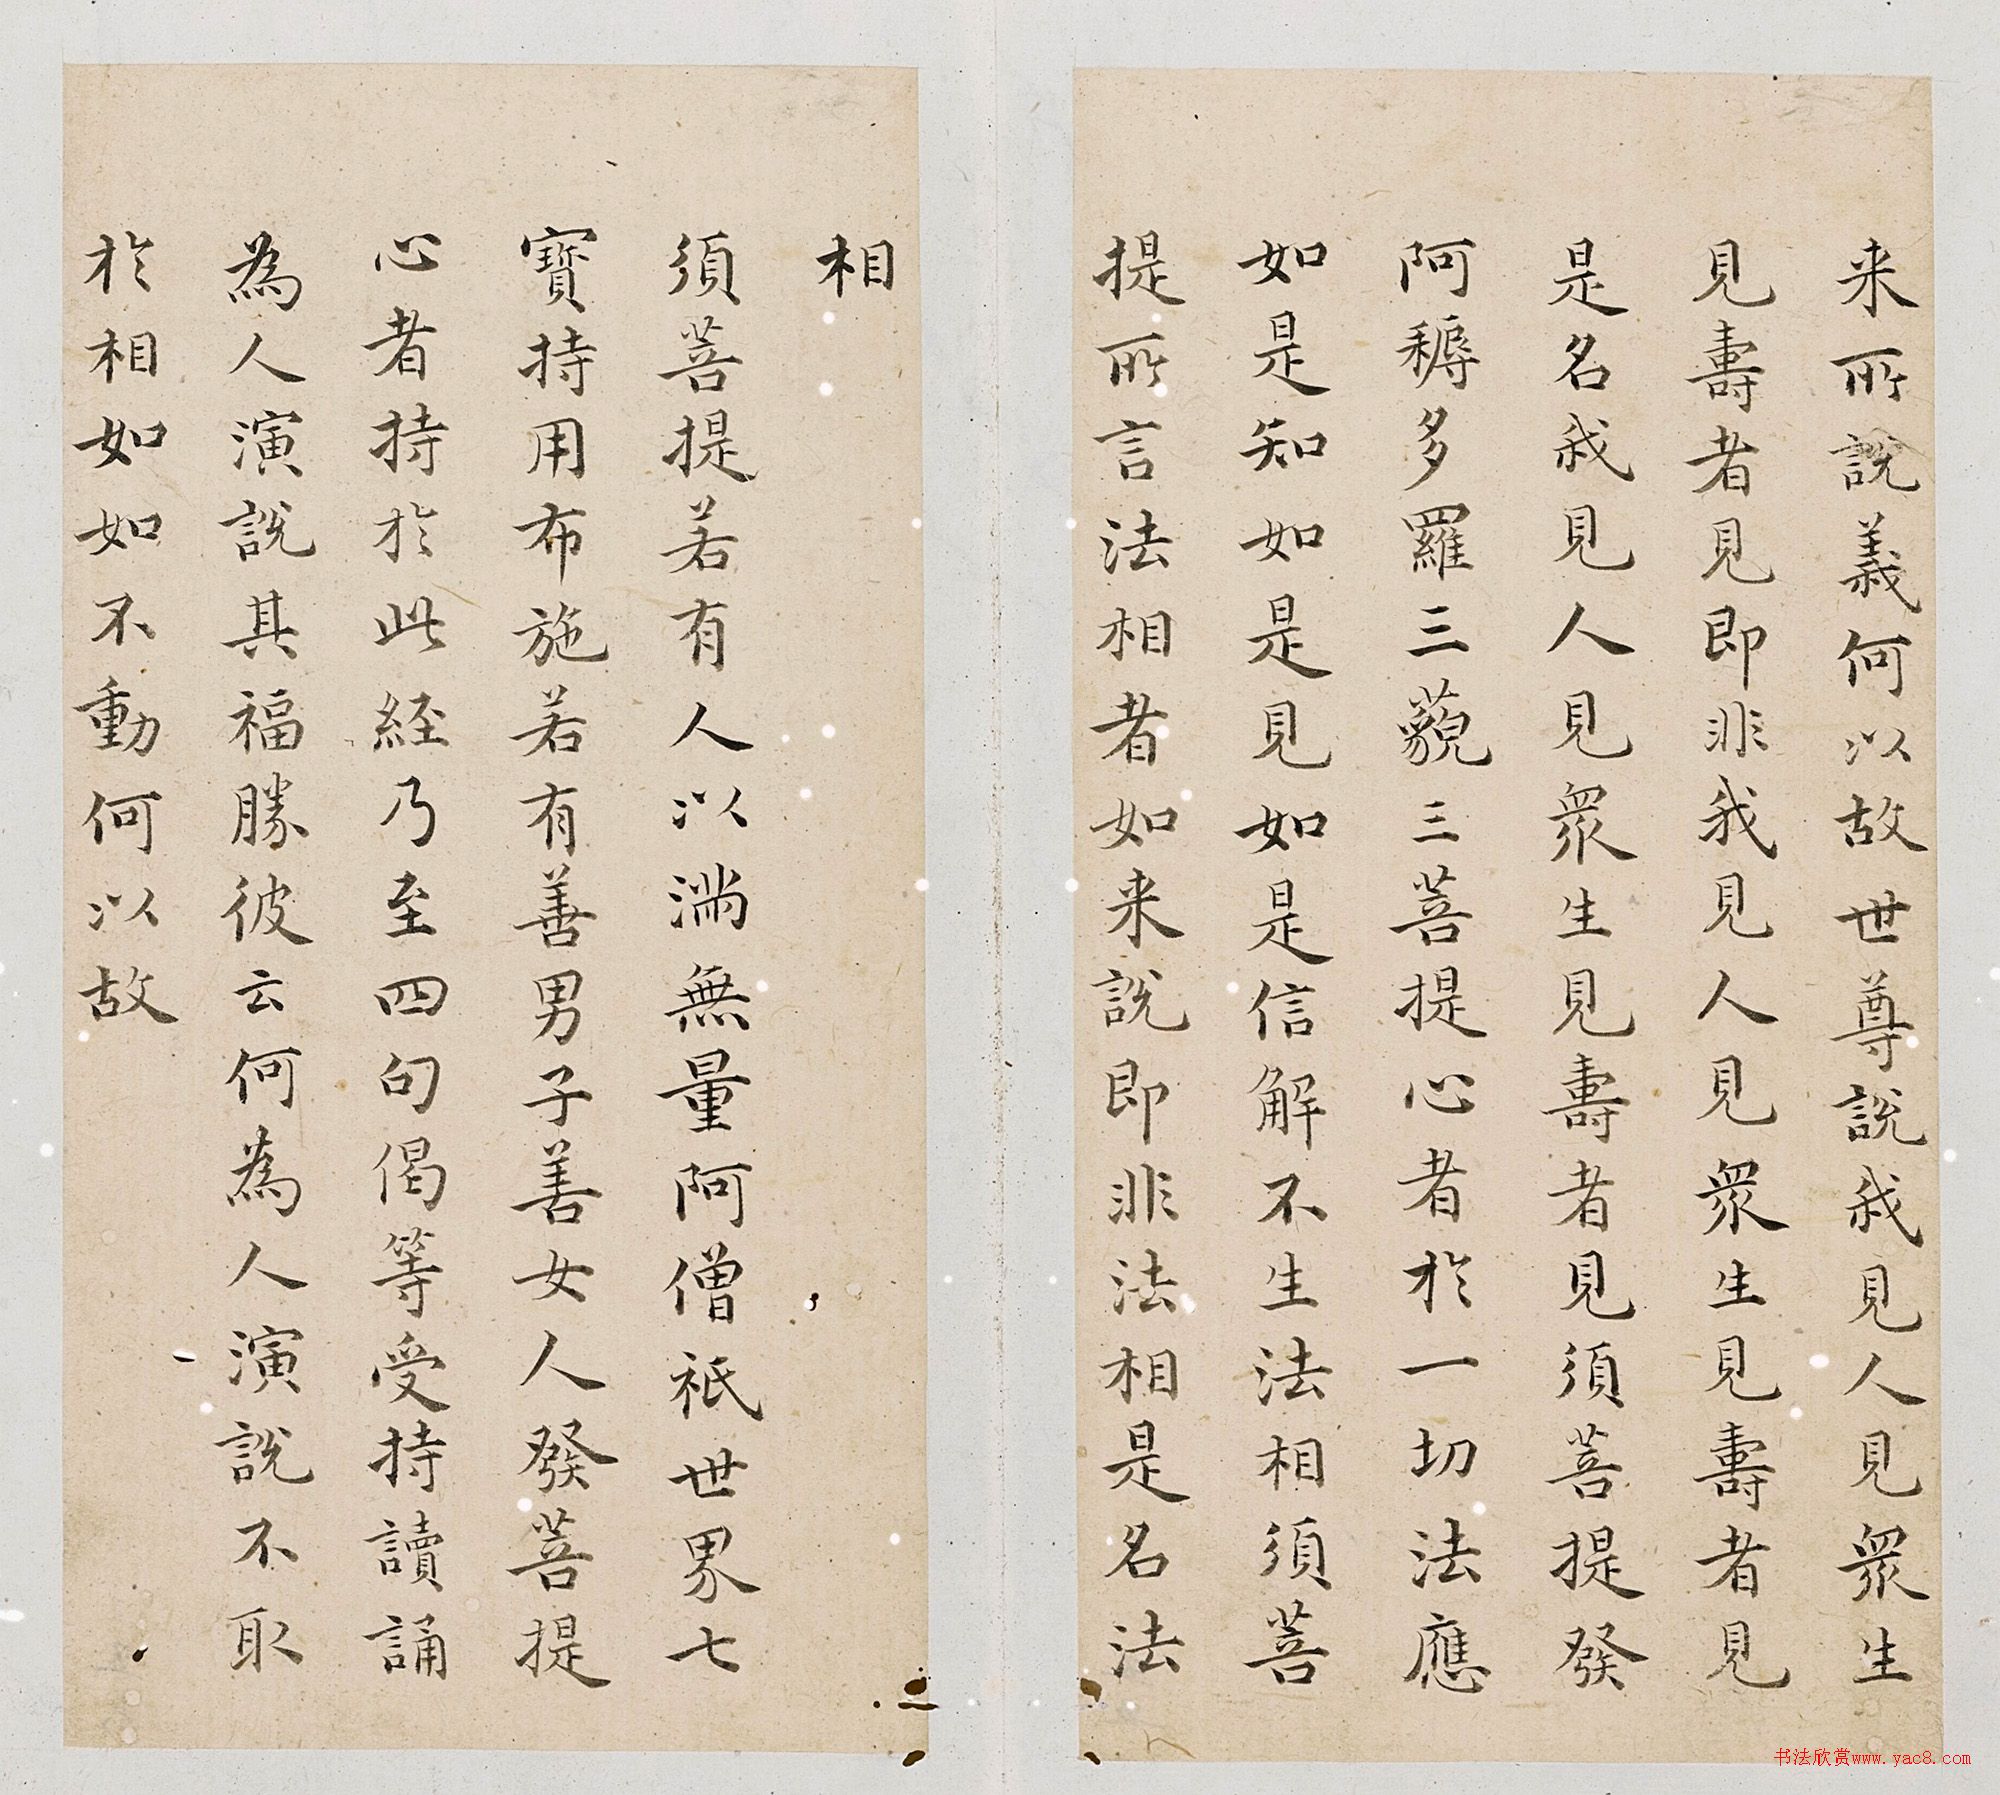 来所說義何以故世尊說我見人見眾生
見壽者見即非我見人見眾生見壽者見
是名我見人見眾生見壽者見須菩提發
阿耨多羅三藐三菩提心者於一切法應
如是知如是見如是信解不生法相須菩
提所言法相者如来說即非法相是名法
相
須菩提若有人以滿無量阿僧祇世界七
寶持用布施若有善男子善女人發菩提
心者持於此經乃至四句偈等受持讀誦
為人演說其福勝彼云何為人演說不取
於相如如不動何以故
书法欣赏www.yac8.com